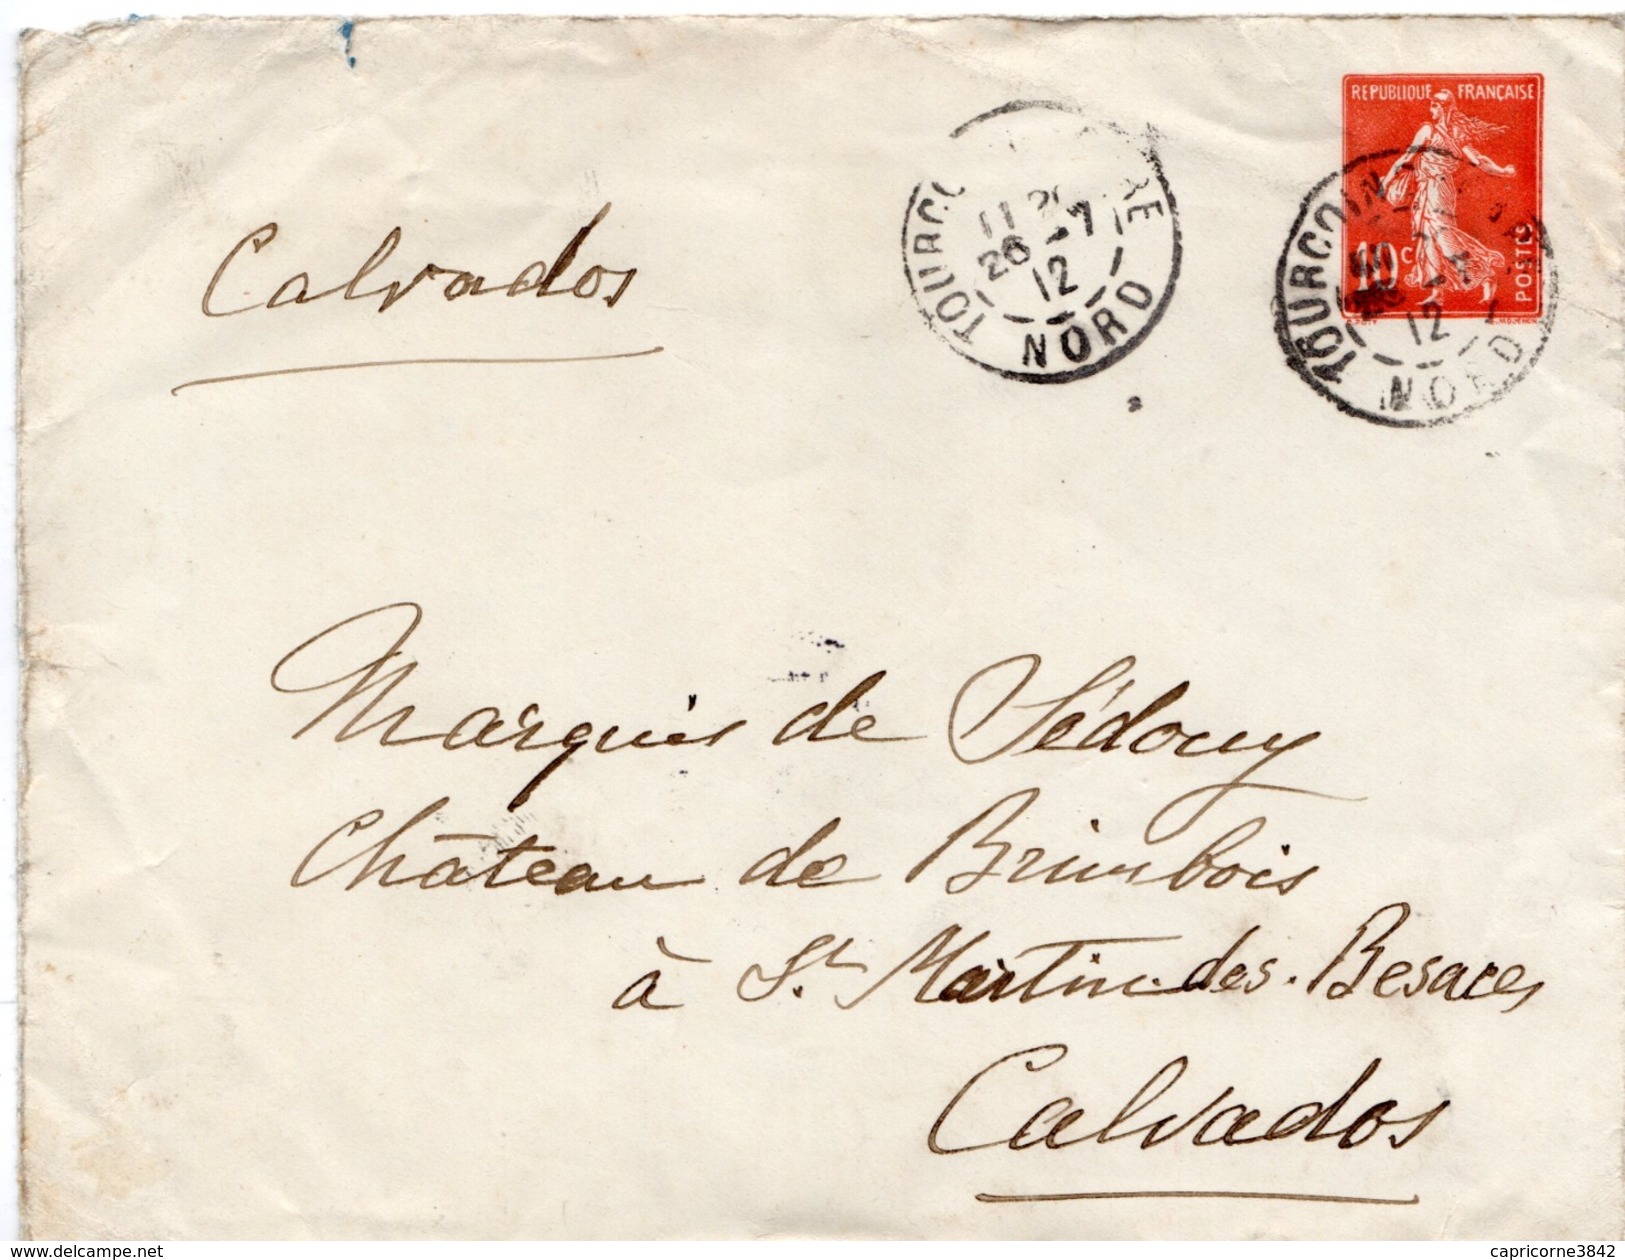 REPUBLIQUE FRANÇAISE
10c
POSTES
TOURCOING
26 -7
12
NORD
TOURCOING
12
NORD
Calvados
Marquis de Sédouy
Château de Brimbois
à St Martin-des-Besaces
Calvados
www.delcampe.net
capricorne3842